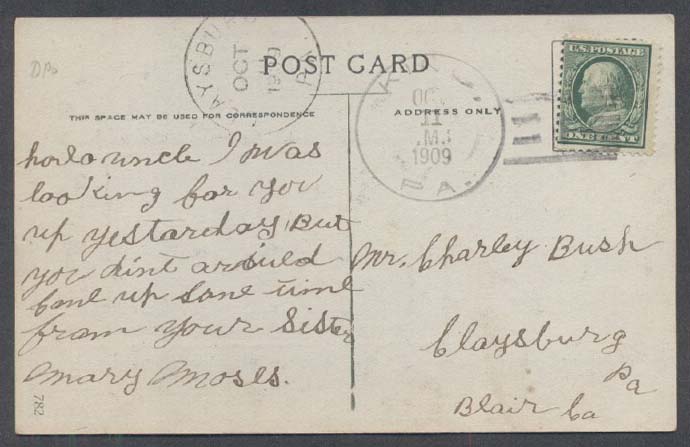 DPO
CLAYSBURG
OCT
1909
PA.
POST CARD
U.S. POSTAGE
ONE CENT
THIS SPACE MAY BE USED FOR CORRESPONDENCE
ADDRESS ONLY
OC
11
.M.
1909
PA.
holo uncle I was
looking for you
up yestarday But
you dint
come up some time
from your Sister
Mary Moses.
Mr. Charley Bush
Claysburg
Pa
Blair Co
782